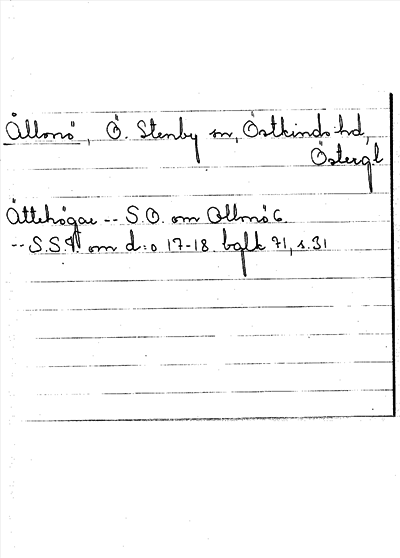 Ållonö, Ö. Stenby sn, Östkinds hd,
Östergl
Ättehögar -- S.O. om Ollonö G.
-- S.S.V. om d:o 17-18 bglk 71, s. 31